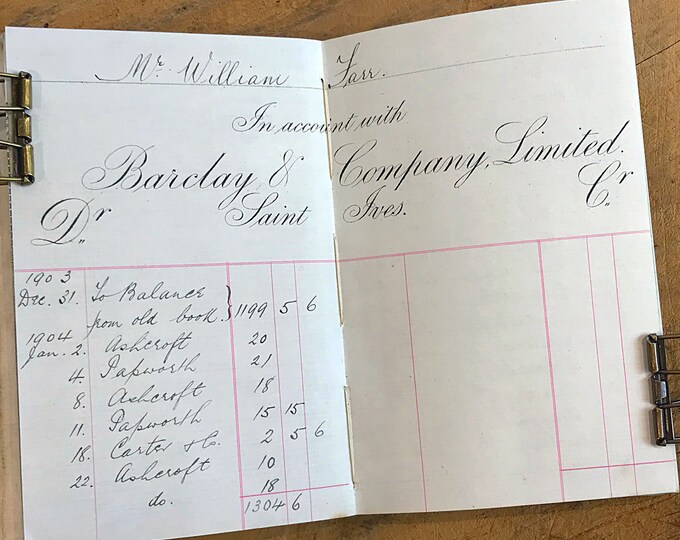 Mr. William Farr.
In account with
Barclay & Company, Limited.
Dr Saint Ives. Cr
1903
Dec. 31. To Balance
from old book. } 1199 5 6
1904
Jan. 2. Ashcroft 20
4. Papworth 21
8. Ashcroft 18
11. Papworth 15 15
18. Carter & Co. 2 5 6
22. Ashcroft 10
do. 18
1304 6